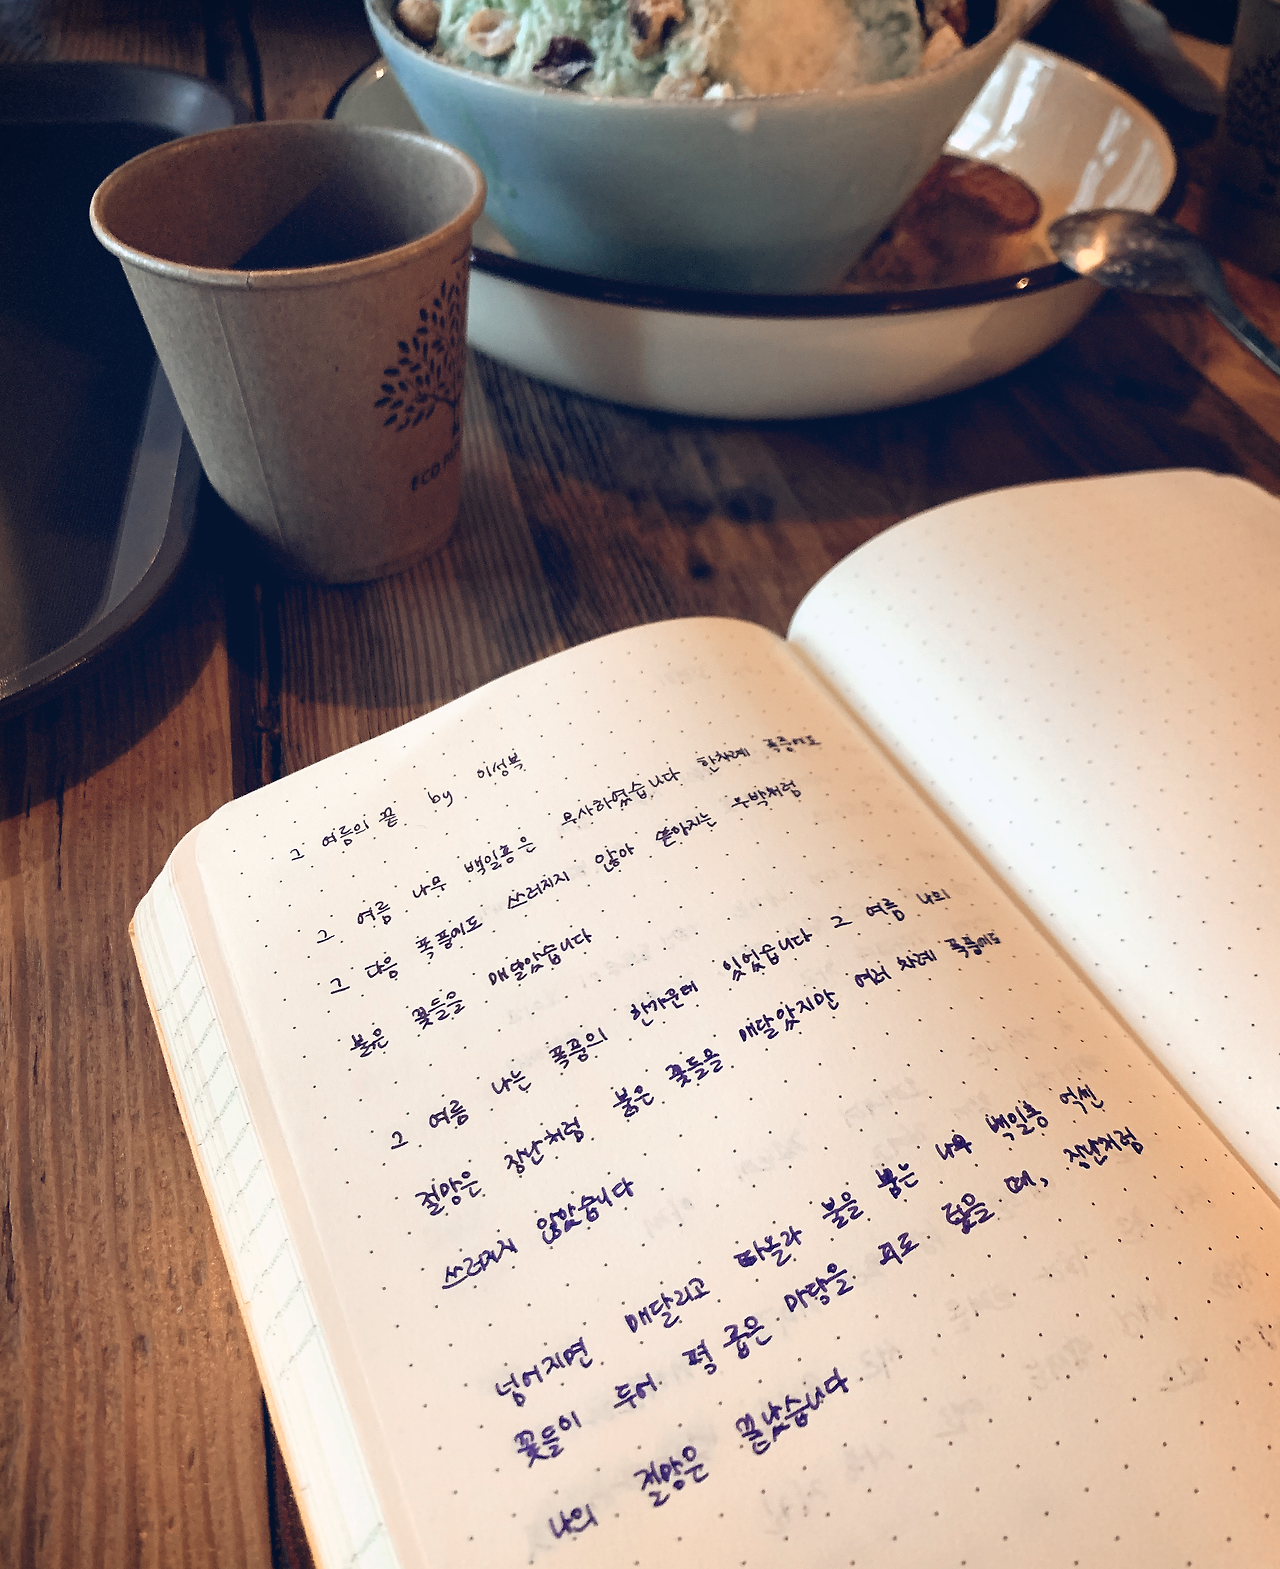 ECO
그 여름의 끝 by 이성복
그 여름 나무 백일홍은 무사하였습니다 한차례 폭풍에도
그 다음 폭풍에도 쓰러지지 않아 쏟아지는 우박처럼
붉은 꽃들을 매달았습니다
그 여름 나는 폭풍의 한가운데 있었습니다 그 여름 나의
절망은 장난처럼 붉은 꽃들을 매달았지만 여러 차례 폭풍에도
쓰러지지 않았습니다
넘어지면 매달리고 타올라 불을 뿜는 나무 백일홍 억센
꽃들이 두어 평 좁은 마당을 피로 덮을 때, 장난처럼
나의 절망은 끝났습니다